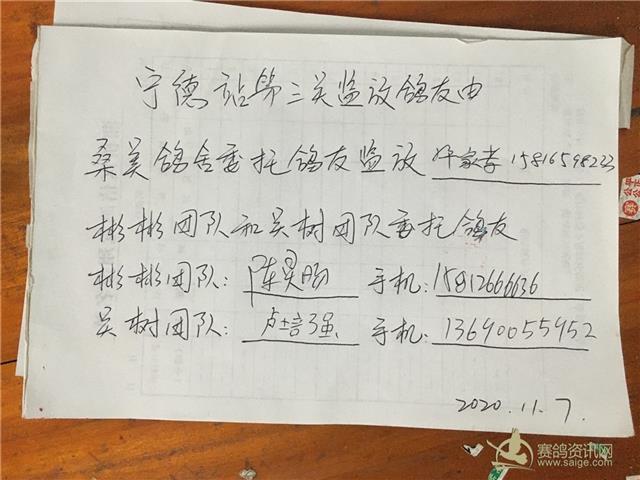 宁德站第三关监放鸽友由
桑美鸽舍委托鸽友监放 15816598233
彬彬团队和吴树团队委托鸽友
彬彬团队: 陈昊 手机:15812666636
吴树团队: 卢 强 手机:13690055952
2020.11.7
赛鸽资讯网
www.saige.com